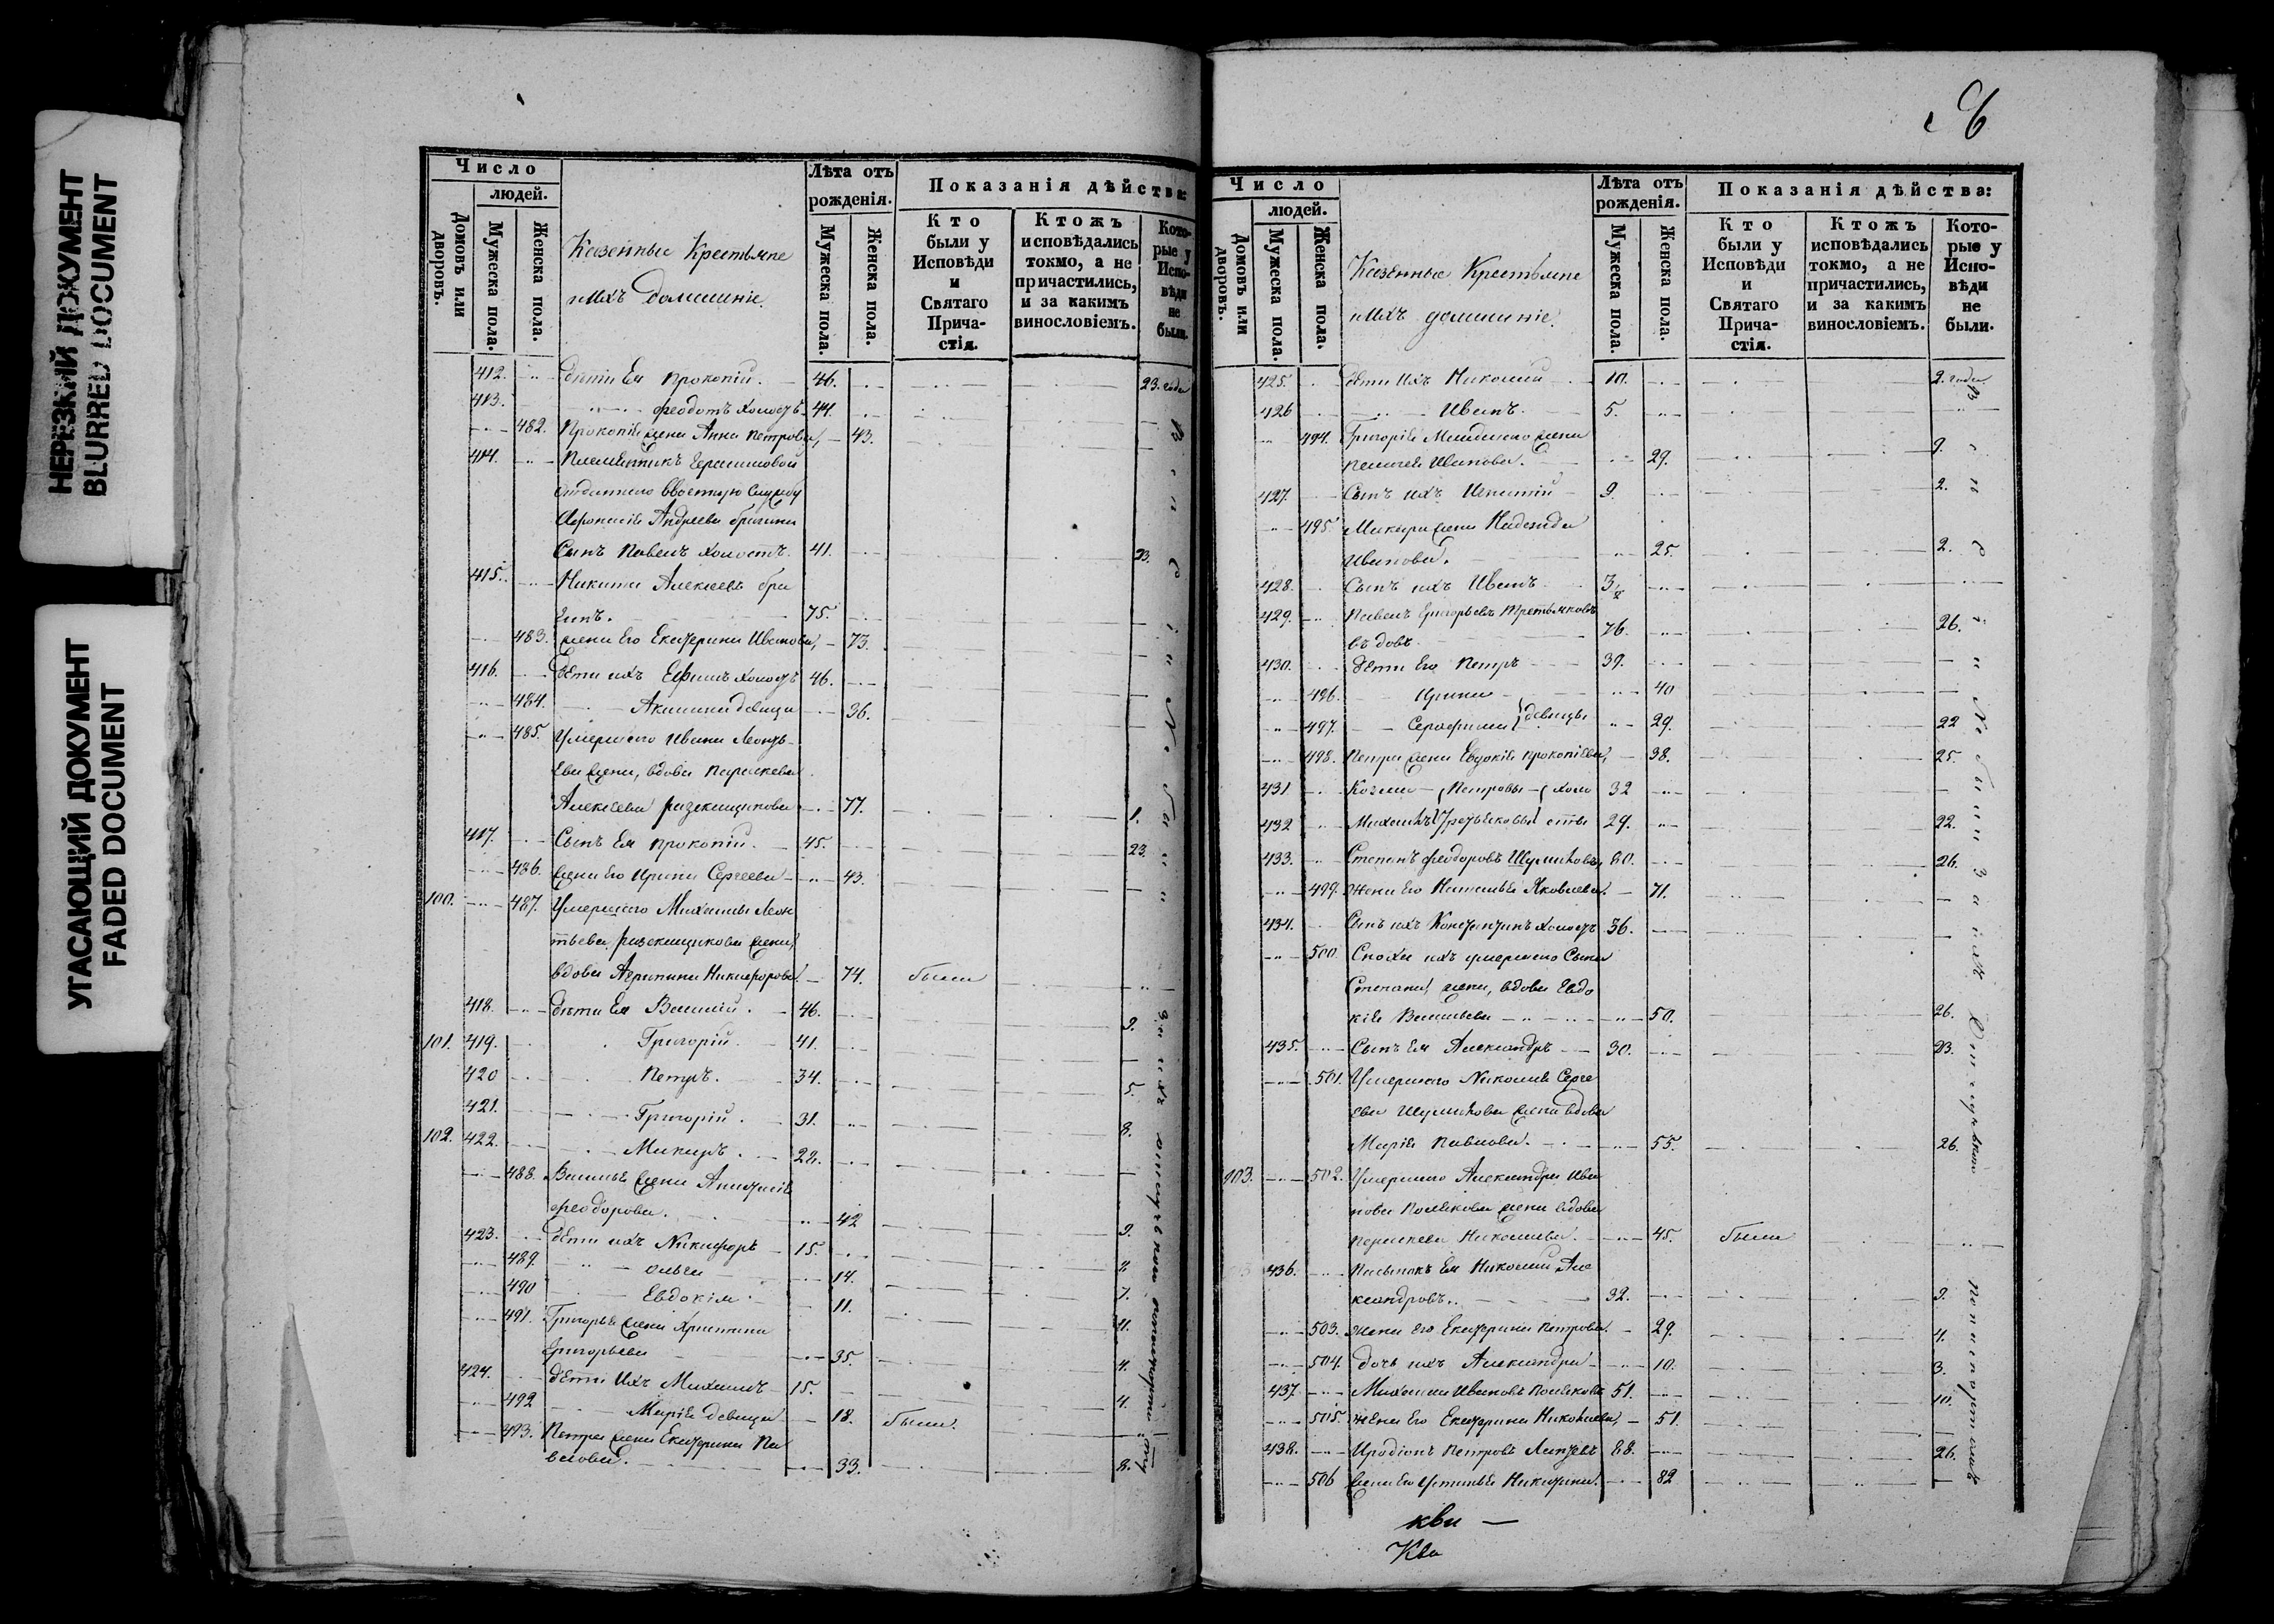 НЕРЕЗКИЙ ДОКУМЕНТ
BLURRED DOCUMENT
УГАСАЮЩИЙ ДОКУМЕНТ
FADED DOCUMENT
Число
людей.
Домовъ или дворовъ.
Мужеска пола.
Женска пола.
Казенные Крестьяне
и ихъ домашніе.
Лѣта отъ рожденія.
Мужеска пола.
Женска пола.
Показанія дѣйства:
Кто были у Исповѣди и Святаго Причастія.
Ктожъ исповѣдались токмо, а не причастились, и за какимъ винословіемъ.
Которые у Исповѣди не были.
412. дѣти Ея Прокопій. 46. 23. года
413. Феодотъ холостъ 44.
482. Прокопія жена Анна Петрова, 43.
414. Племянникъ
отданнаго ввоенную службу
Афонасія Андреева
Сынъ Павелъ холостъ. 41. 23.
415. Никита Алексеевъ
75.
483. жена Его Екатерина Иванова, 73.
416. Дѣти ихъ Ефимъ холостъ 46.
484. Акилина девица 36.
485. Умершаго Ивана Леонтьева
жена, вдова Параскева
Алексеева 77. 1.
417. Сынъ Ея Прокопій. 45. 23.
486. жена Его Ирина Сергеева 43.
100. 487. Умершаго Михаила Леон
тьева жена,
вдова Агрипина Никифорова 74. была
418. дѣти Ея Василій. 46. 9.
101. 419. Григорій. 41.
420 Петръ. 34. 5.
421. Григорій. 31. 8.
102. 422. Макаръ. 22.
488. Василья жена Анастасія
Феодорова. 42 9.
423. Дѣти ихъ Никифоръ 15. 2
489. Ольга 14. 7.
490 Евдокія 11. 4.
491. Григорья жена Христина
Григорьева 35. 4.
424. дѣти Ихъ Михаилъ 15. 4.
492 Марія девица 18. была.
493. Петра жена Екатерина Па
влова. 33. 8.
Число
людей.
Домовъ или дворовъ.
Мужеска пола.
Женска пола.
Казенные Крестьяне
и ихъ домашніе.
Лѣта отъ рожденія.
Мужеска пола.
Женска пола.
Показанія дѣйства:
Кто были у Исповѣди и Святаго Причастія.
Ктожъ исповѣдались токмо, а не причастились, и за какимъ винословіемъ.
Которые у Исповѣди не были.
425. дѣти ихъ Николай 10. 2. года
426 Иванъ. 5.
494. Григорія Младшаго жена
Пелагея Иванова. 29. 9.
427. Сынъ ихъ Игнатій 9. 2.
495. Макара жена Надежда
Иванова. 25. 2.
428. Сынъ ихъ Иванъ 3½
429. Павелъ Григорьевъ Третьяковъ
вдовъ 76. 26.
430. Дѣти Его Петръ 39.
496. Ирина 40
497. Серафима девицы 29. 22
498. Петра жена Евдокія Прокопіева, 38. 25.
431 Козма Петровы холо 32
432 Михаилъ Третьяковы сты 29. 22.
433. Степанъ Феодоровъ Шумиловъ, 80. 26.
499. Жена Его Наталья Яковлева. 71.
434. Сынъ ихъ Константинъ холостъ 36.
500 Сноха ихъ умершаго Сына
Степана, жена, вдова Евдо
кія Васильева 50. 26.
435. Сынъ Ея Александръ 30. 23.
501. Умершаго Николая Серге
ева Шумилова жена вдова
Марія Павлова. 55. 26.
103. 502. Умершаго Александра Ива
нова Полякова жена вдова
Параскева Николаева. 45. была
436. Пасынокъ Ея Николай Але
ксандровъ. 32. 9.
503. Жена Его Екатерина Петрова. 29. 4.
504. дочь ихъ Александра 10. 3.
437. Михаилъ Ивановъ Поляковъ 51. 10.
505. жена Его Екатерина Николаева, 51.
438. Иродіонъ Петровъ 88. 26.
506 жена Его Наталья Никитина. 82